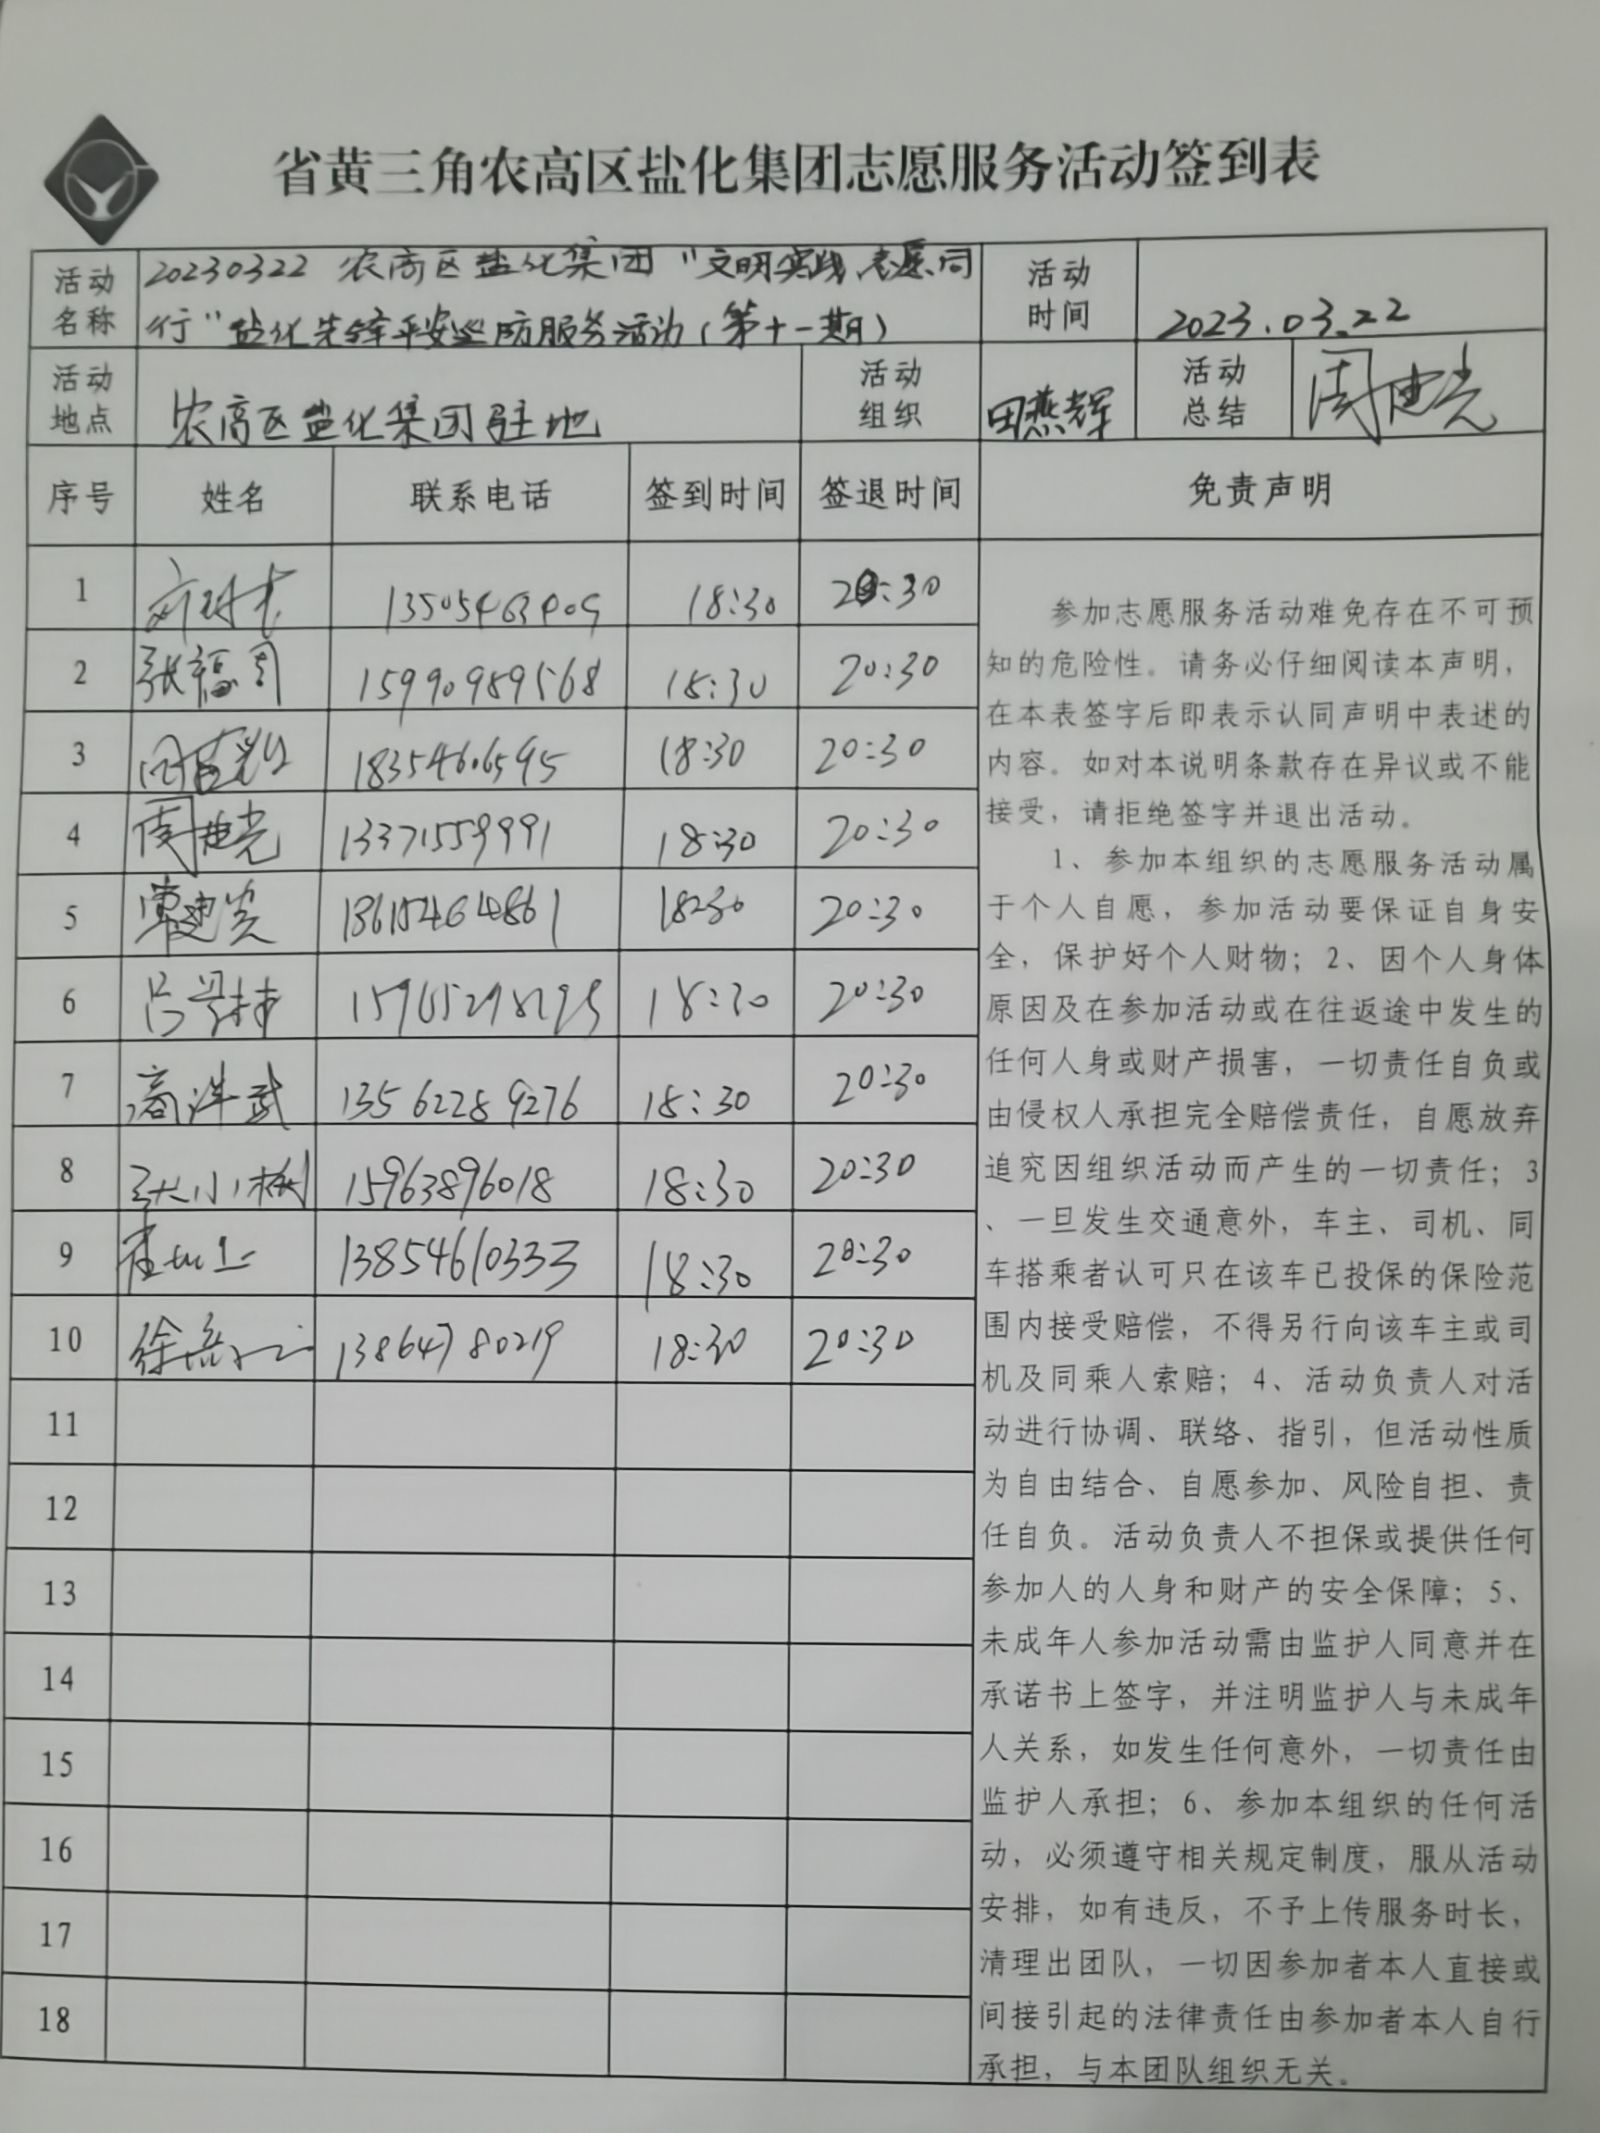 省黄三角农高区盐化集团志愿服务活动签到表
活动名称
20230322 农高区盐化集团"文明实践 志愿同
行"盐化先锋平安巡防服务活动(第十一期)
活动时间
2023.03.22
活动地点
农高区盐化集团驻地
活动组织
田燕辉
活动总结
周建光
序号 姓名 联系电话 签到时间 签退时间 免责声明
1 18:30 20:30
2 张福周 15990989568 18:30 20:30
3 18354606595 18:30 20:30
4 周建光 13371559991 18:30 20:30
5 18:30 20:30
6 18:30 20:30
7 高洋武 13562289276 18:30 20:30
8 张小树 15963896018 18:30 20:30
9 13854610333 18:30 20:30
10 13864780219 18:30 20:30
11
12
13
14
15
16
17
18
参加志愿服务活动难免存在不可预
知的危险性。请务必仔细阅读本声明，
在本表签字后即表示认同声明中表述的
内容。如对本说明条款存在异议或不能
接受，请拒绝签字并退出活动。
1、参加本组织的志愿服务活动属
于个人自愿，参加活动要保证自身安
全，保护好个人财物；2、因个人身体
原因及在参加活动或在往返途中发生的
任何人身或财产损害，一切责任自负或
由侵权人承担完全赔偿责任，自愿放弃
追究因组织活动而产生的一切责任；3
、一旦发生交通意外，车主、司机、同
车搭乘者认可只在该车已投保的保险范
围内接受赔偿，不得另行向该车主或司
机及同乘人索赔；4、活动负责人对活
动进行协调、联络、指引，但活动性质
为自由结合、自愿参加、风险自担、责
任自负。活动负责人不担保或提供任何
参加人的人身和财产的安全保障；5、
未成年人参加活动需由监护人同意并在
承诺书上签字，并注明监护人与未成年
人关系，如发生任何意外，一切责任由
监护人承担；6、参加本组织的任何活
动，必须遵守相关规定制度，服从活动
安排，如有违反，不予上传服务时长，
清理出团队，一切因参加者本人直接或
间接引起的法律责任由参加者本人自行
承担，与本团队组织无关。